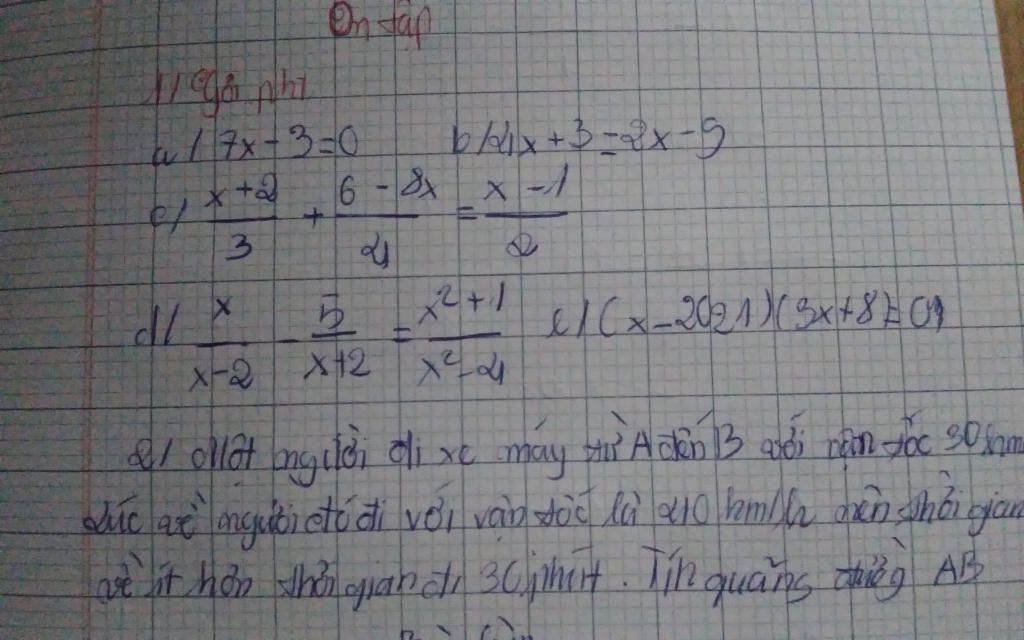 Ôn tập
1/ Giải phi
a/ 7x - 3 = 0 b/ 4x + 3 = 2x - 5
c/ \frac{x+2}{3} + \frac{6-8x}{4} = \frac{x-1}{2}
d/ \frac{x}{x-2} - \frac{5}{x+2} = \frac{x^2+1}{x^2-4} e/ (x-2021)(3x+8)=0
2/ Một người đi xe máy từ A đến B với vận tốc 30 km
lúc về người đó đi với vận tốc là 40 km/h nên thời gian
về ít hơn thời gian đi 30 phút. Tính quãng đường AB